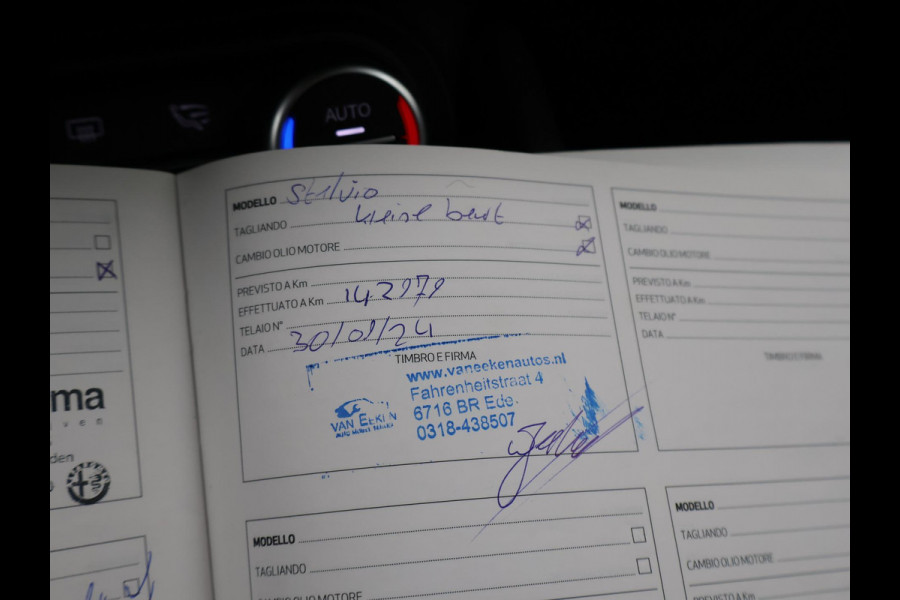 AUTO
MODELLO Stelvio
TAGLIANDO kleine beurt
CAMBIO OLIO MOTORE
PREVISTO A Km
EFFETTUATO A Km 142979
TELAIO N°
DATA 30/01/24
TIMBRO E FIRMA
www.vaneekenautos.nl
Fahrenheitstraat 4
6716 BR Ede
0318-438507
VAN EEKEN
MODELLO
TAGLIANDO
CAMBIO OLIO MOTORE
PREVISTO A Km
EFFETTUATO A Km
TELAIO N°
DATA
TIMBRO E FIRMA
ma
ven
den
MODELLO
TAGLIANDO
CAMBIO OLIO MOTORE
MODELLO
TAGLIANDO
CAMBIO OLIO MOTORE
PREVISTO A Km